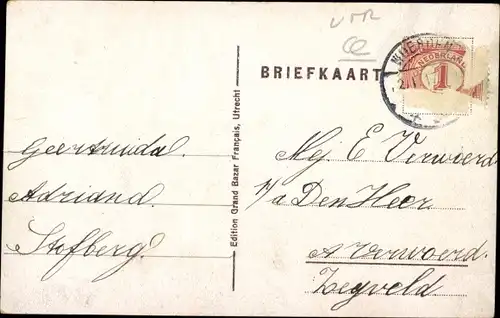 UTR
CC
BRIEFKAART
WOERDEN
NEDERLAND
1
Geertruida.
Adriana.
Stofberg.
Edition Grand Bazar Français, Utrecht
Mej E Verwoerd
p/a Den Heer
A Verwoerd.
Zegveld